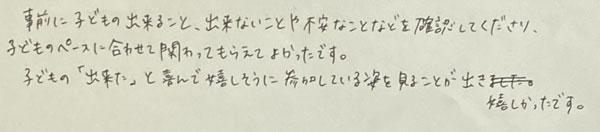 事前に子どもの出来ること、出来ないことや不安なことなどを確認してくださり、
子どものペースに合わせて関わってもらえてよかったです。
子どもの「出来た」と喜んで嬉しそうに参加している姿を見ることが出き
嬉しかったです。